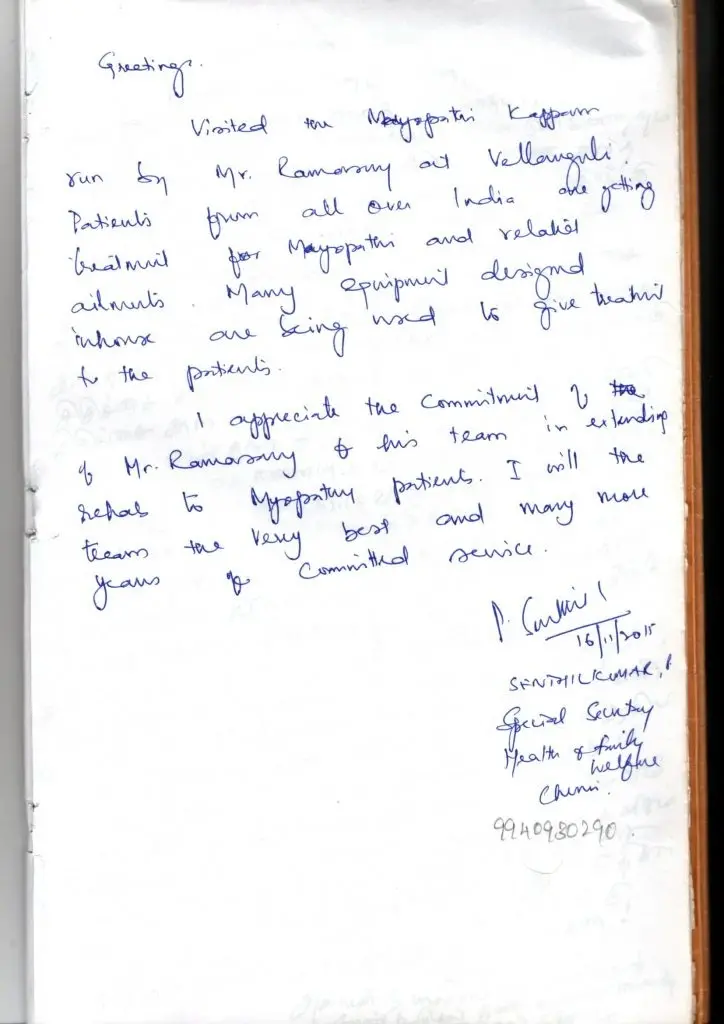 Greetings.
Visited the Mayopathi Kappam
run by Mr. Ramasamy at Vellanguli.
Patients from all over India are getting
treatment for Mayopathi and related
ailments. Many equipment designed
inhouse are being used to give treatment
to the patients.
I appreciate the commitment of the
of Mr. Ramasamy & his team in extending
rehab to Myopathy patients. I will the
team the very best and many more
years of committed service.
P. Senthil
16/11/2015
SENTHILKUMAR, P
Special Secretary
Health & family
welfare
Chennai.
9940930290.